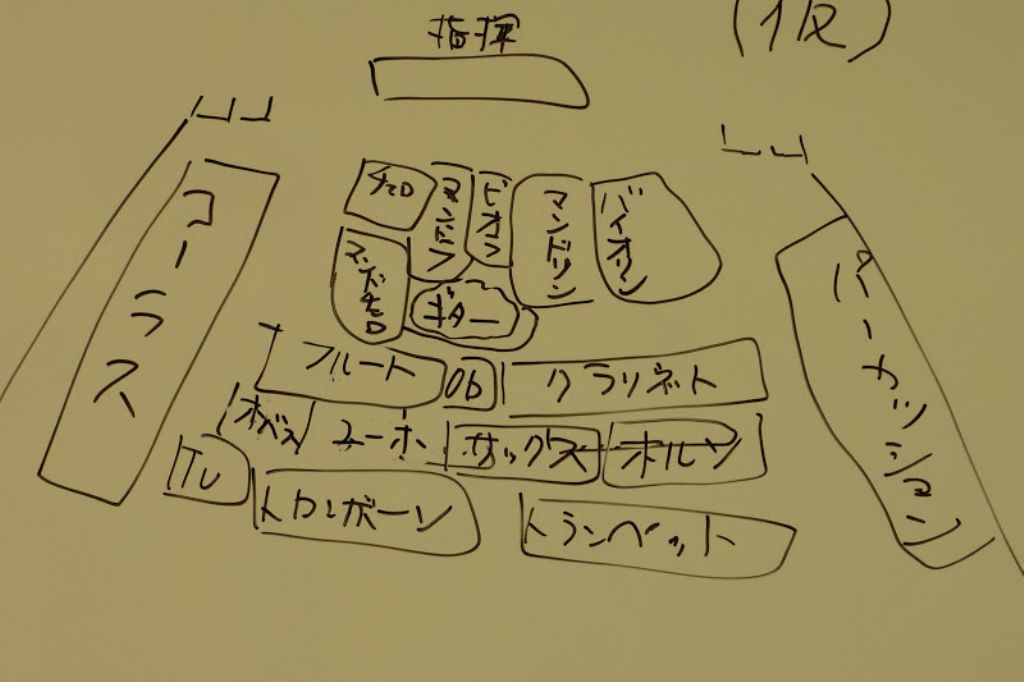 (仮)
指揮
コーラス
チェロ
マンドラ
ビオラ
マンドリン
バイオリン
マンドチェロ
ギター
パーカッション
フルート
Ob
クラリネット
オバス
ユーホ
サックス
ホルン
Tu
トロンボーン
トランペット